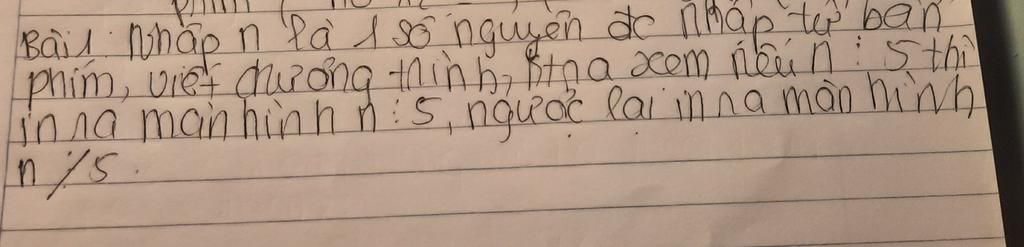 Bài 1: Nhập n là 1 số nguyên đc nhập từ bàn
phím, viết chương trình, ktra xem nếu n : 5 thì
in ra màn hình n : 5, ngược lại in ra màn hình
n ⁒ 5.